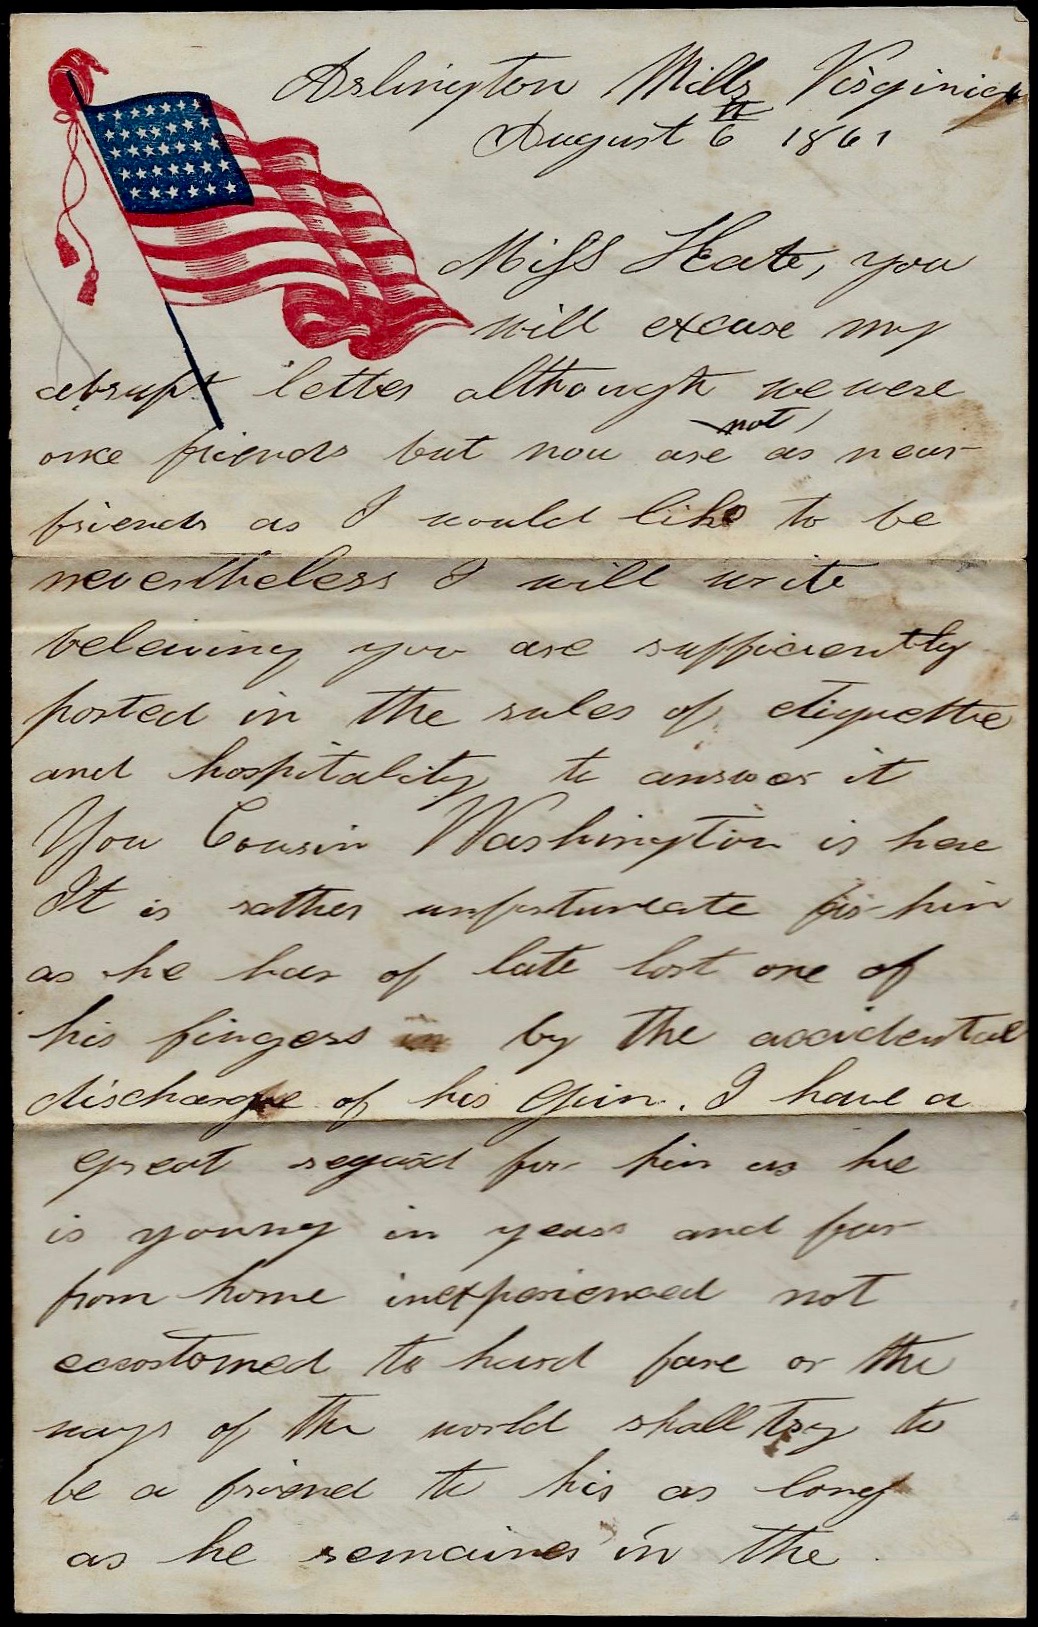 Arlington Mills Virginia
August 6th 1861
Miss Kate, you
will excuse my
abrupt letter although we were
once friends but now are not as near
friends as I would like to be
nevertheless I will write
beleiving you are sufficiently
posted in the rules of etiquette
and hospitality to answer it
You Cousin Washington is here
It is rather unfortunate for him
as he has of late lost one of
his fingers in by the accidental
discharge of his Gun. I have a
great regard for him as he
is young in years and far
from home inexperienced not
accostomed to hard fare or the
ways of the world shall try to
be a friend to his as long
as he remaines in the